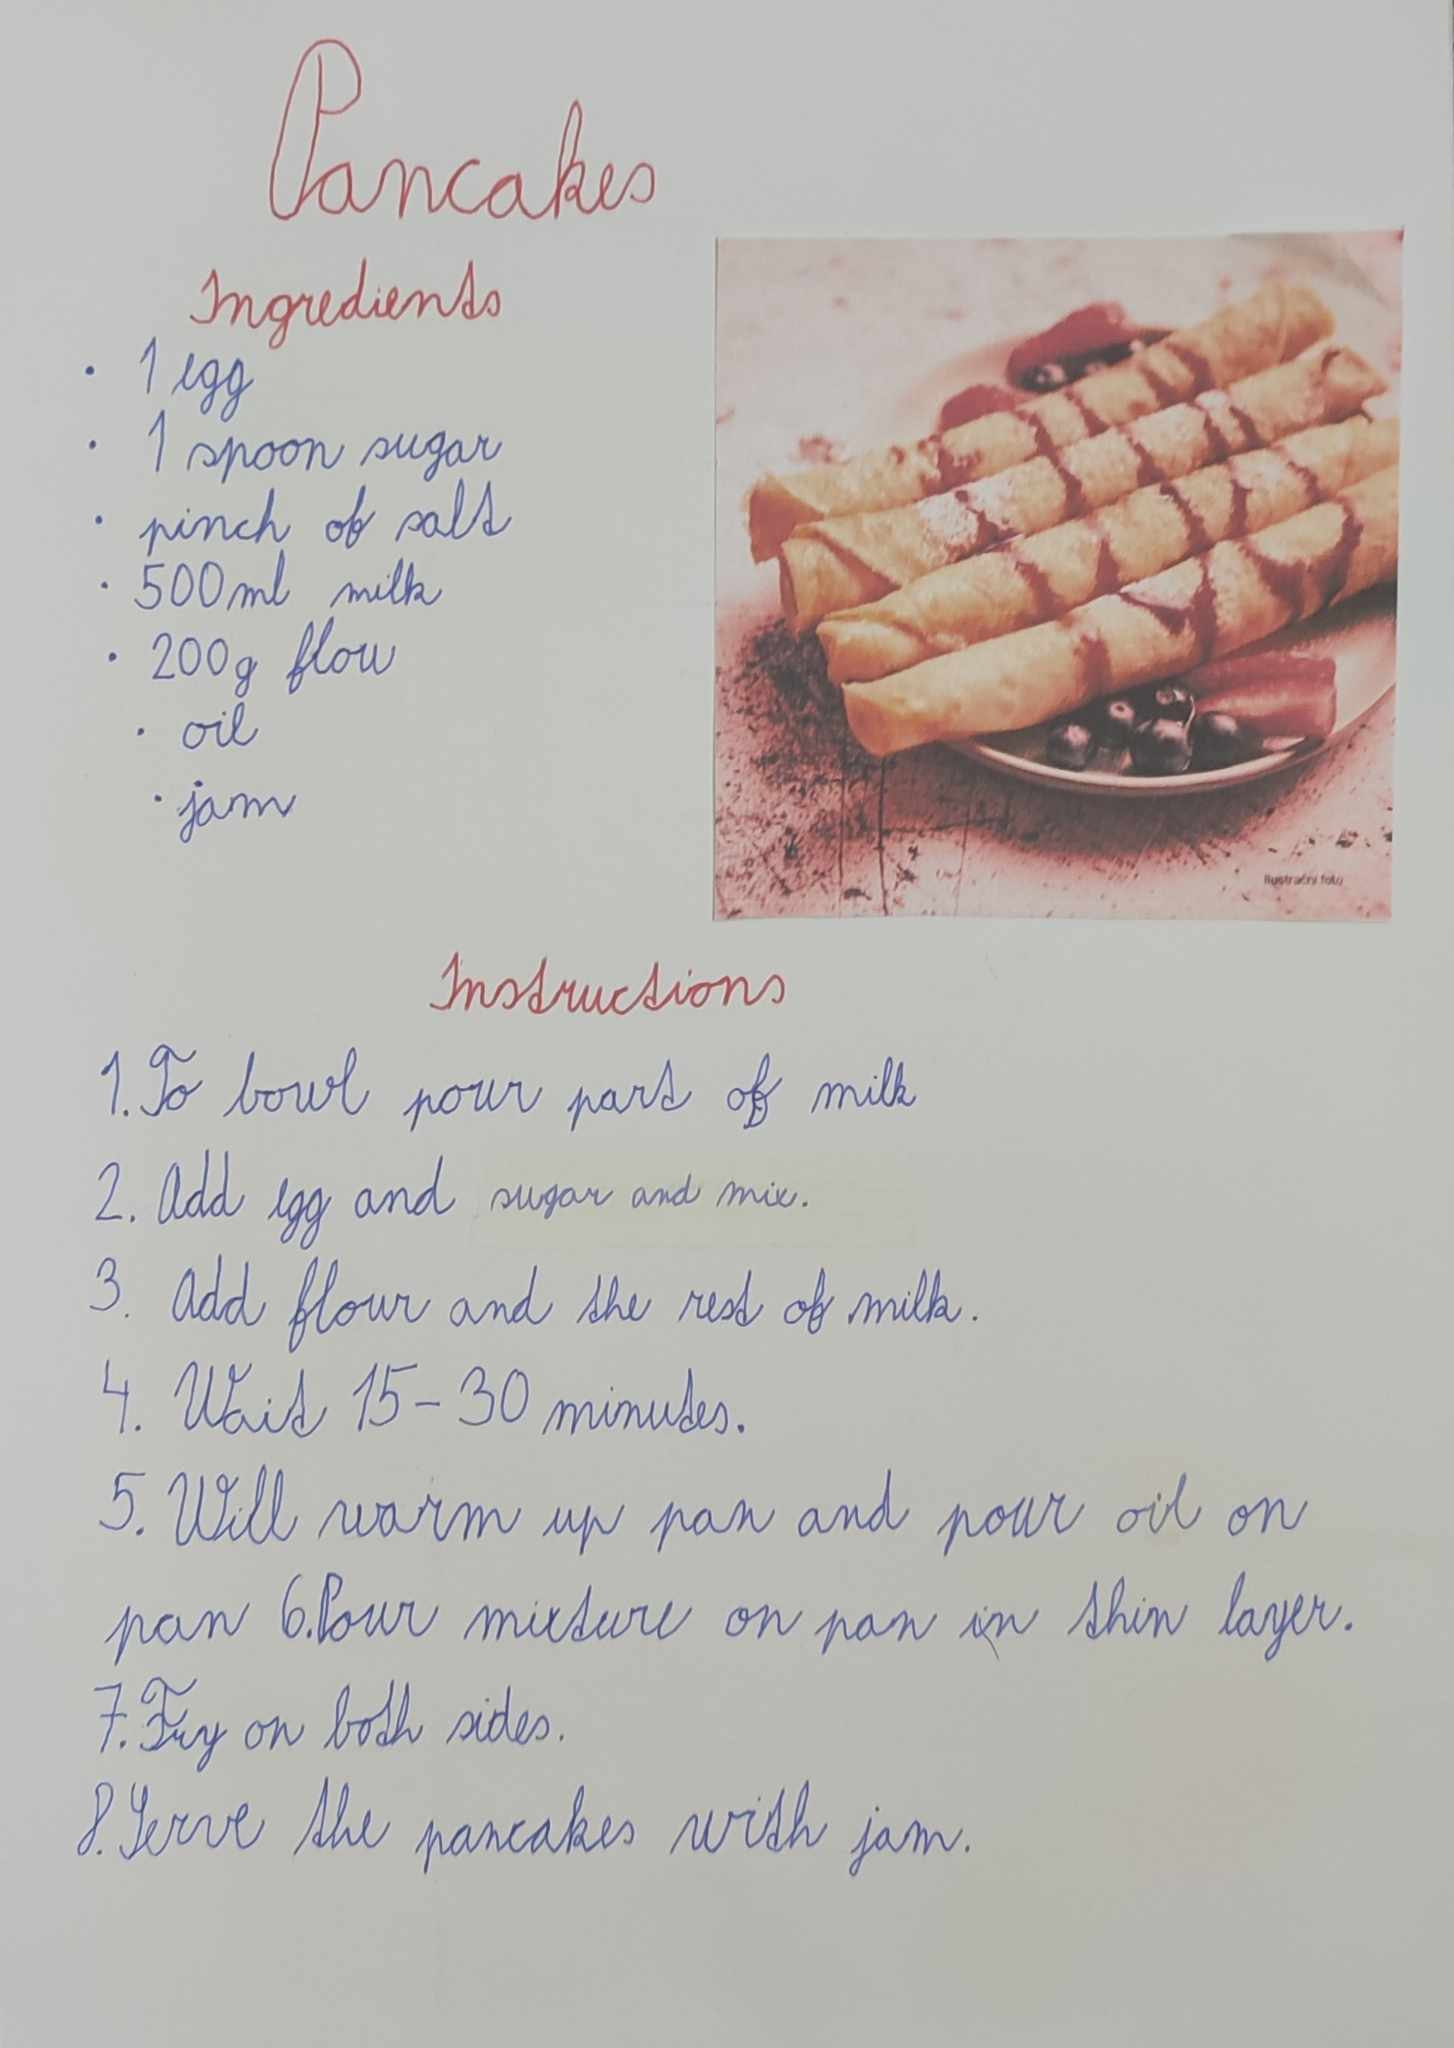 Pancakes
Ingredients
• 1 egg
• 1 spoon sugar
• pinch of salt
• 500ml milk
• 200g flou
• oil
• jam
Ilustrační foto
Instructions
1. To bowl pour part of milk
2. Add egg and sugar and mix.
3. Add flour and the rest of milk.
4. Wait 15-30 minutes.
5. Will warm up pan and pour oil on
pan 6. Pour mixture on pan in thin layer.
7. Fry on both sides.
8. Serve the pancakes with jam.